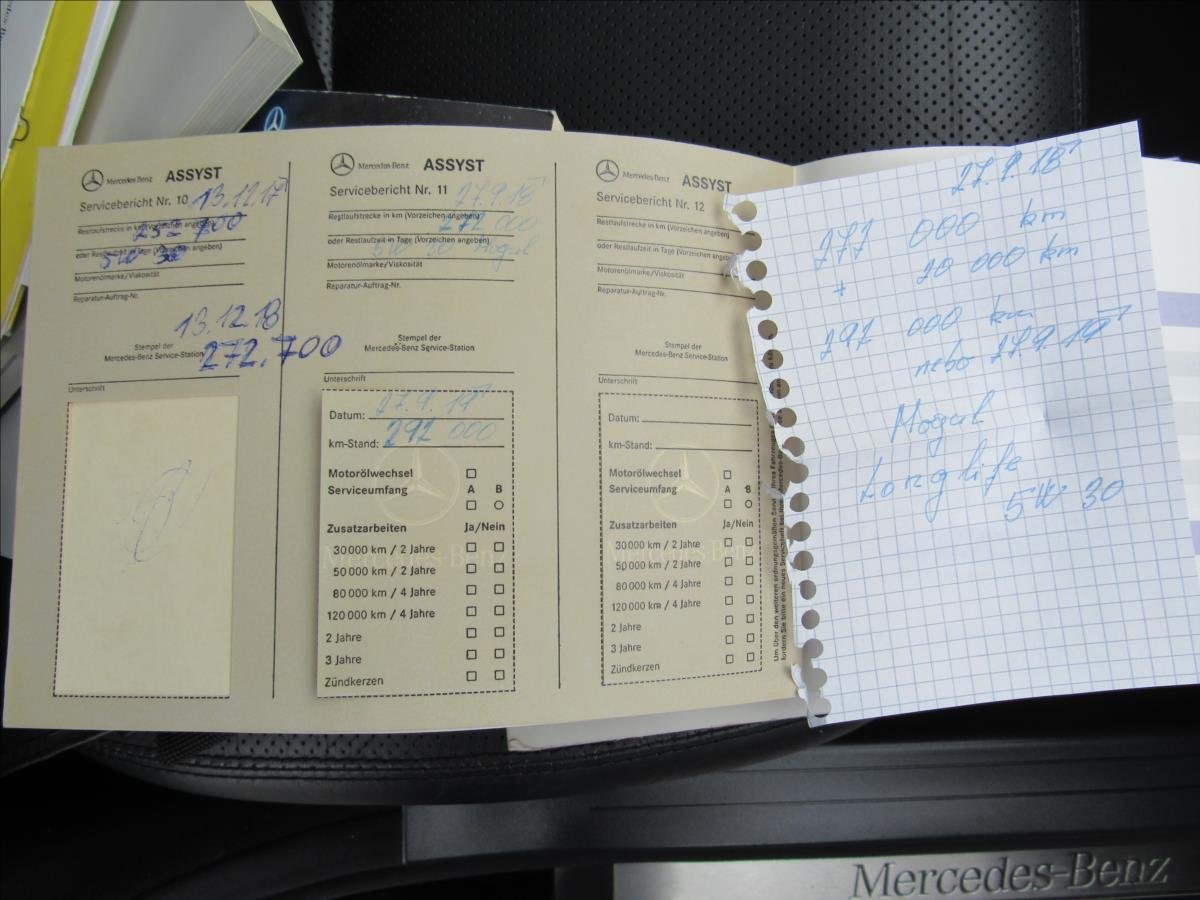 Mercedes-Benz ASSYST
Servicebericht Nr. 10 13.12.17
Restlaufstrecke in km (Vorzeichen angeben)
252 700
oder Restlaufzeit in Tage (Vorzeichen angeben)
5W 30
Motorenölmarke/Viskosität
Reparatur-Auftrag-Nr.
13.12.18
Stempel der
Mercedes-Benz Service-Station
272.700
Unterschrift
Mercedes-Benz ASSYST
Servicebericht Nr. 11
27.9.18
Restlaufstrecke in km (Vorzeichen angeben)
272 000
oder Restlaufzeit in Tage (Vorzeichen angeben)
5W 30 Mogul
Motorenölmarke/Viskosität
Reparatur-Auftrag-Nr.
Stempel der
Mercedes-Benz Service-Station
Unterschrift
Datum: 27.9.19
km-Stand: 292 000
Motorölwechsel
Serviceumfang A B
Zusatzarbeiten Ja/Nein
30 000 km / 2 Jahre
50 000 km / 2 Jahre
80 000 km / 4 Jahre
120 000 km / 4 Jahre
2 Jahre
3 Jahre
Zündkerzen
Mercedes-Benz
Mercedes-Benz ASSYST
Servicebericht Nr. 12
Restlaufstrecke in km (Vorzeichen angeben)
oder Restlaufzeit in Tage (Vorzeichen angeben)
Motorenölmarke/Viskosität
Reparatur-Auftrag-Nr.
Stempel der
Mercedes-Benz Service-Station
Unterschrift
Datum:
km-Stand:
Motorölwechsel
Serviceumfang A B
Zusatzarbeiten Ja/Nein
30 000 km / 2 Jahre
50 000 km / 2 Jahre
80 000 km / 4 Jahre
120 000 km / 4 Jahre
2 Jahre
3 Jahre
Zündkerzen
Mercedes-Benz
27.9.18
277 000 km
+ 20 000 km
297 000 km
nebo 27.9.19
Mogul
Longlife
5W 30
Mercedes-Benz